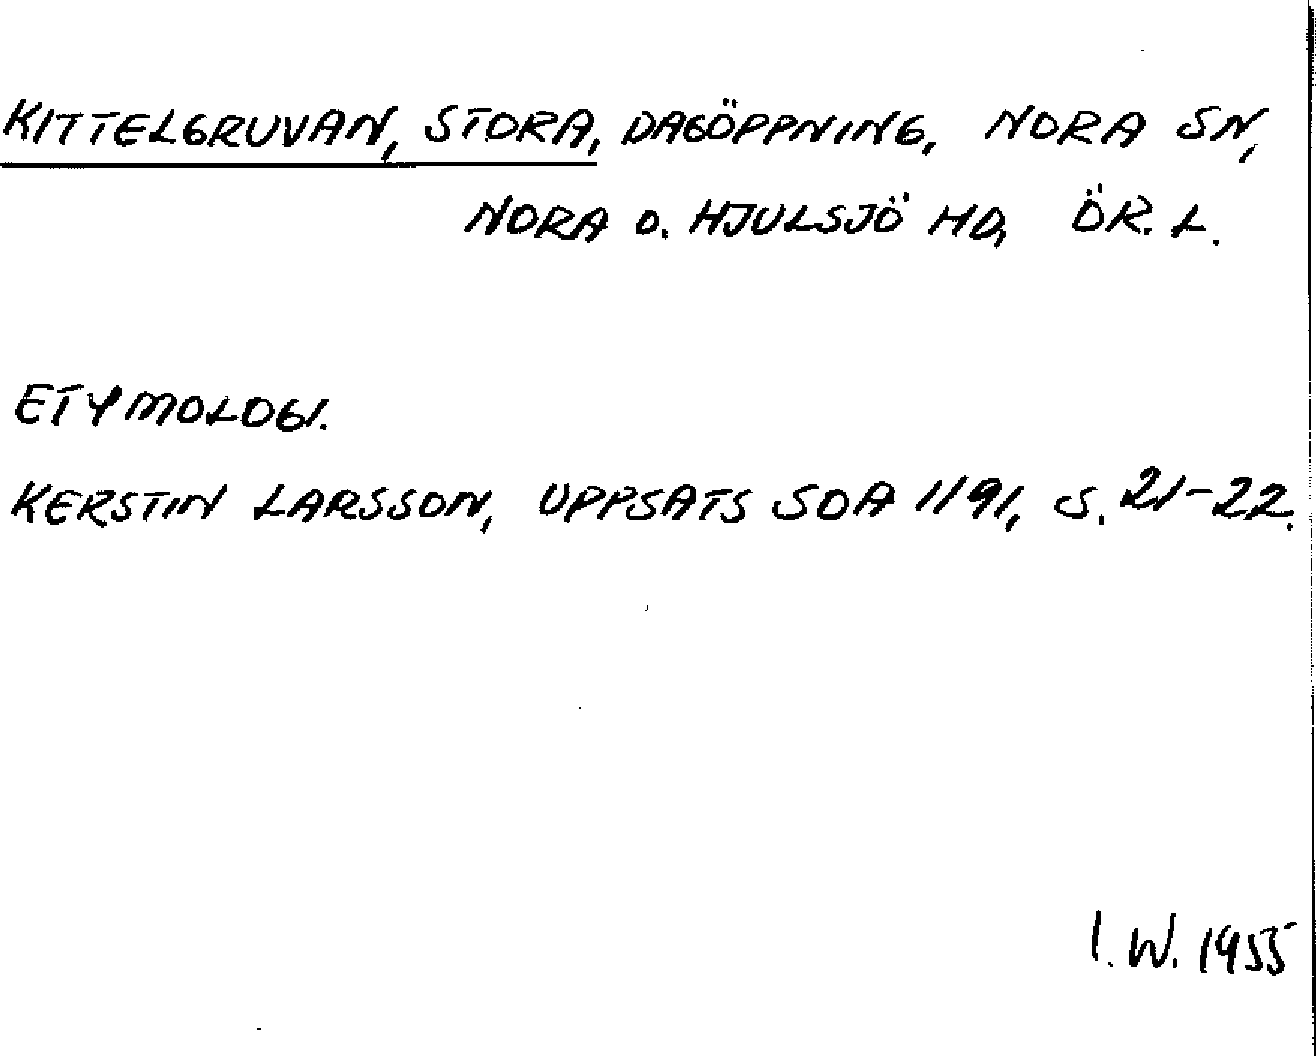 KITTELGRUVAN, STORA, DAGÖPPNING, NORA SN,
NORA O. HJULSJÖ HD, ÖR. L.
ETYMOLOGI.
KERSTIN LARSSON, UPPSATS SOA 1191, S. 21-22.
I. W. 1955